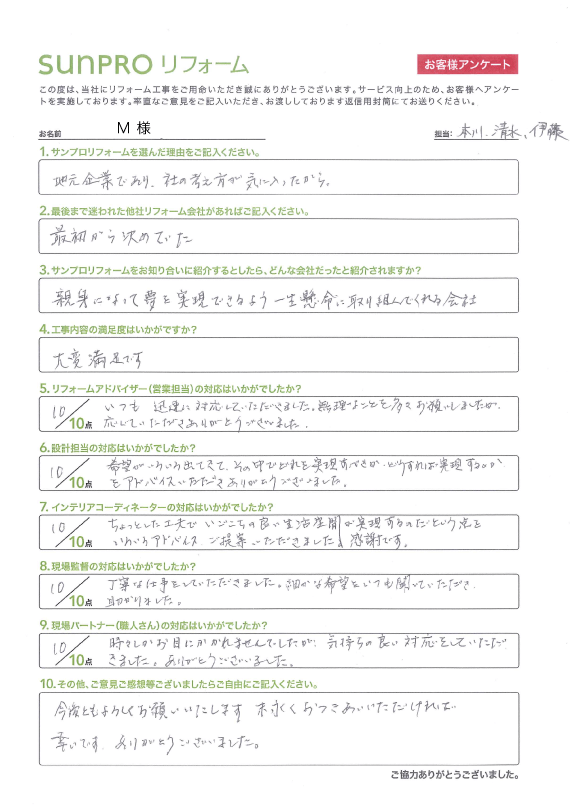 sunpro リフォーム
お客様アンケート
この度は、当社にリフォーム工事をご用命いただき誠にありがとうございます。サービス向上のため、お客様へアンケー
トを実施しております。率直なご意見をご記入いただき、お渡ししております返信用封筒にてお送りください。
お名前 M 様 担当: 本川、清水、伊藤
1. サンプロリフォームを選んだ理由をご記入ください。
地元企業であり、社の考え方が気に入ったから。
2. 最後まで迷われた他社リフォーム会社があればご記入ください。
最初から決めていた
3. サンプロリフォームをお知り合いに紹介するとしたら、どんな会社だったと紹介されますか?
親身になって夢を実現できるよう一生懸命に取り組んでくれる会社
4. 工事内容の満足度はいかがですか?
大変満足です
5. リフォームアドバイザー(営業担当)の対応はいかがでしたか?
いつも 迅速に対応していただきました。無理なことを多々お願いしましたが、
10/10点 応していただきありがとうございました。
6. 設計担当の対応はいかがでしたか?
希望がいろいろ出てきて、その中でどれを実現すべきか、どうすれば実現するのか
10/10点 をアドバイスいただきありがとうございました。
7. インテリアコーディネーターの対応はいかがでしたか?
ちょっとした工夫で いごこちの良い生活空間が実現するのだという点を
10/10点 いろいろアドバイス ご提案いただきました。感謝です。
8. 現場監督の対応はいかがでしたか?
丁寧な仕事をしていただきました。細かな希望をいつも聞いていただき、
10/10点 助かりました。
9. 現場パートナー(職人さん)の対応はいかがでしたか?
時々しかお目にかかれませんでしたが、気持ちの良い対応をしていただ
10/10点 きました。ありがとうございました。
10. その他、ご意見ご感想等ございましたらご自由にご記入ください。
今後ともよろしくお願いいたします 末永くおつきあいいただければ
幸いです。ありがとうございました。
ご協力ありがとうございました。